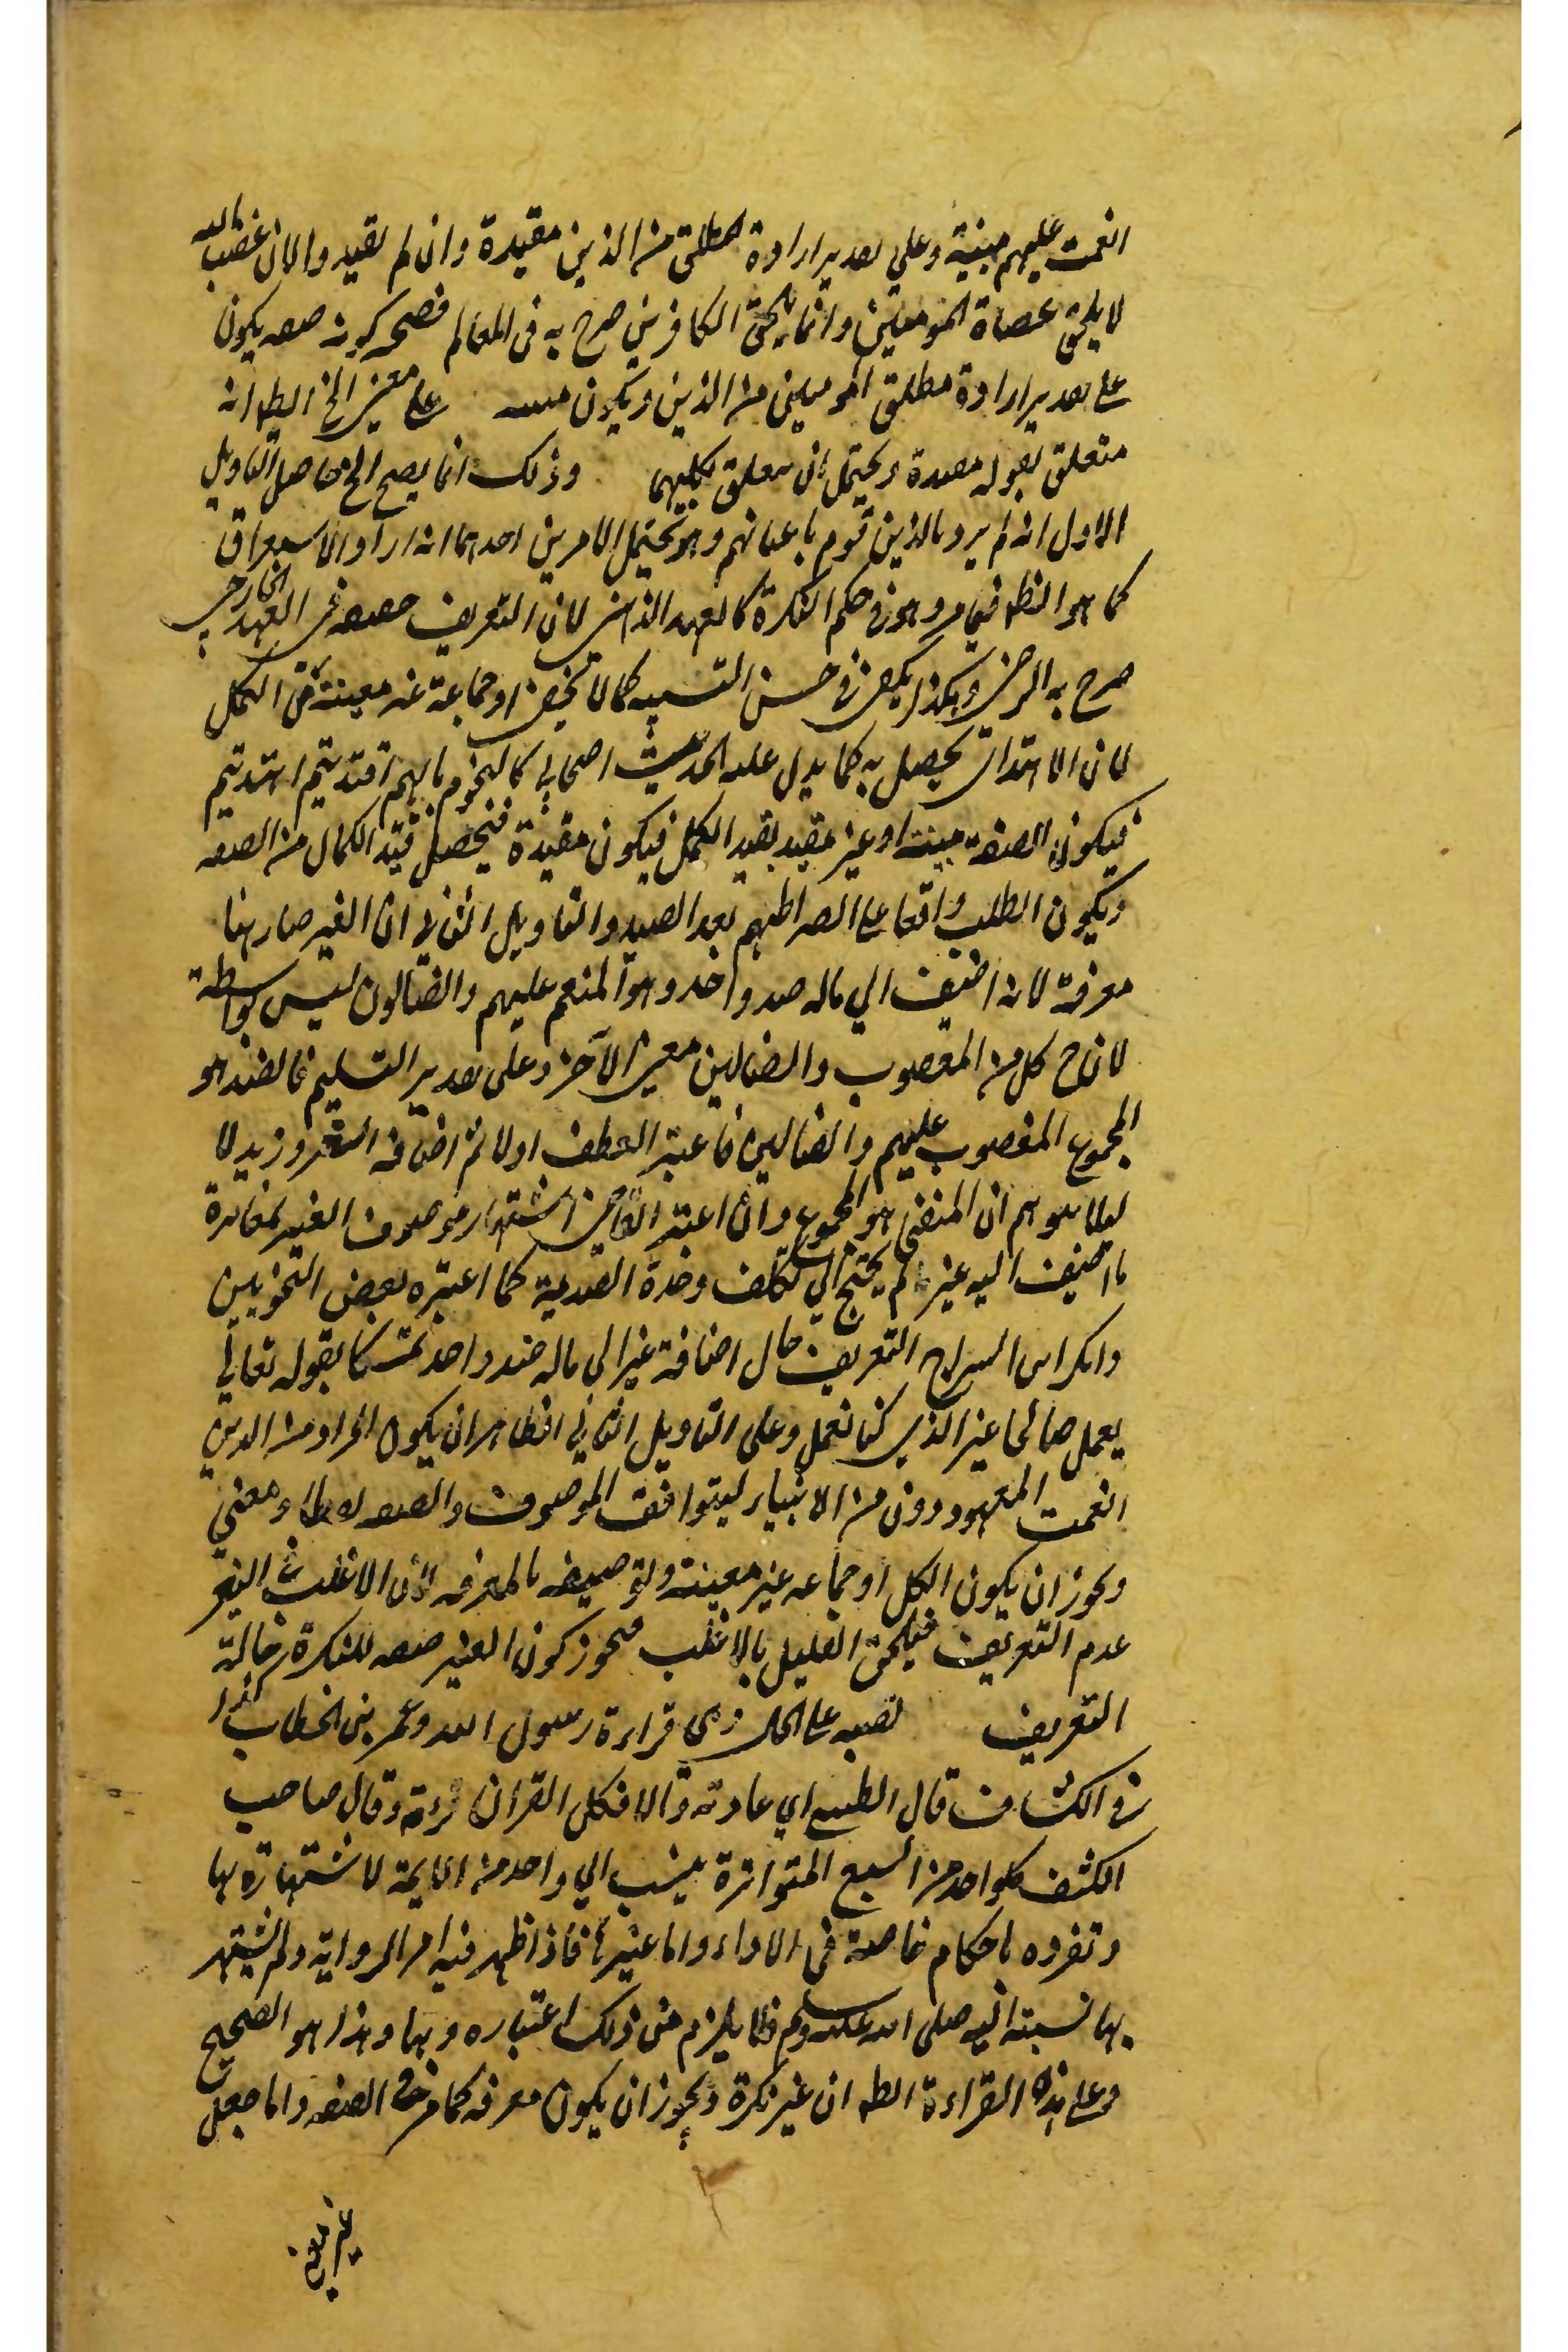 انعمت عليهم مبينة وعلى تقدير ارادة المطلق من الذين مقيدة وان لم تقيد والا لان غضب الله
لا يلحق عصاة المومنين وانما يلحق الكافرين صرح به في المعالم فصح كونه صفه يكون
على تقدير ارادة مطلق المومنين من الذين ويكون مبينه على معنى الخ الظ انه
متعلق بقوله مقيدة ويحتمل ان يتعلق بكليهما وذلك انما يصح الخ حاصل التاويل
الاول انه لم يرد بالذين قوم باعيانهم وهو يحتمل الامرين احدهما انه اراد الاستغراق
كما هو الظ فيما مر وهو في حكم النكرة كالعهد الذهني لان التعريف حقيقه في العهد الخارجي
صرح به الرضي وهكذا يكفي في حسن التشبيه كما لا يخفى او جماعة غير معينة من الكمل
لان الاهتداء يحصل به كما يدل عليه الحديث اصحابي كالنجوم بايهم اقتديتم اهتديتم
فيكون الصفة مبينة او غير مقيد بقيد الكمل فيكون مقيدة فيحصل قيد الكمال من الصفه
ويكون الطلب واقعا على الصراطهم بعد التقييد والتاويل الثاني ان الغير صار هنا
معرفة لانه اضيف الي ماله ضد واحد وهو المنعم عليهم والضالون ليس بواسطة
لان ح كل من المغضوب والضالين معنى الآخر وعلى تقدير التسليم فالضد هو
المجموع المغضوب عليهم والضالين فاعتبر العطف اولا ثم اضافه وزيد لا
ليلا يتوهم ان المنفي هو المجموع وان اعتبر القاضي اشتهار موصوف الغير بمغايرة
ما اضيف اليه غير لم يحتج الي تكلف وحدة الضدية كما اعتبره بعض النحويين
وانكر ابن السراج التعريف حال اضافة غير الى ماله ضد واحد تمسكا بقوله تعالي
يعمل صالحا غير الذي كنا نعمل وعلى التاويل الثاني الظاهر ان يكون المراد من الذين
انعمت المعهودون من الانبياء ليتوافق الموصوف والصفه لفظا ومعني
ويجوز ان يكون الكل او جماعه غير معينة وتوصيفه بالمعرفه لان الاغلب في الغير
عدم التعريف فيلحق القليل بالاغلب فيجوز كون الغير صفه للنكرة حالة
التعريف نصبه على الحال وهي قراءة رسول الله وعمر بن الخطاب كذا
في الكشاف قال الطيبي اي عادته والا فكل القران قرءة وقال صاحب
الكشف كلواحد من السبع المتواترة ينسب الي واحد من الايمة لاشتهاره بها
وتفرده باحكام خاصة في الاداء واما غيرها فاذا ظهر فيه امر الرواية ولم يشتهر
بها نسبته اليه صلى الله عليه وسلم فلا يلزم من ذلك اعتباره وبها وهذا هو الصحيح
وعلى هذه القراءة الظ ان غير نكرة ويجوز ان يكون معرفه كما مر في الصفه وانما جعل